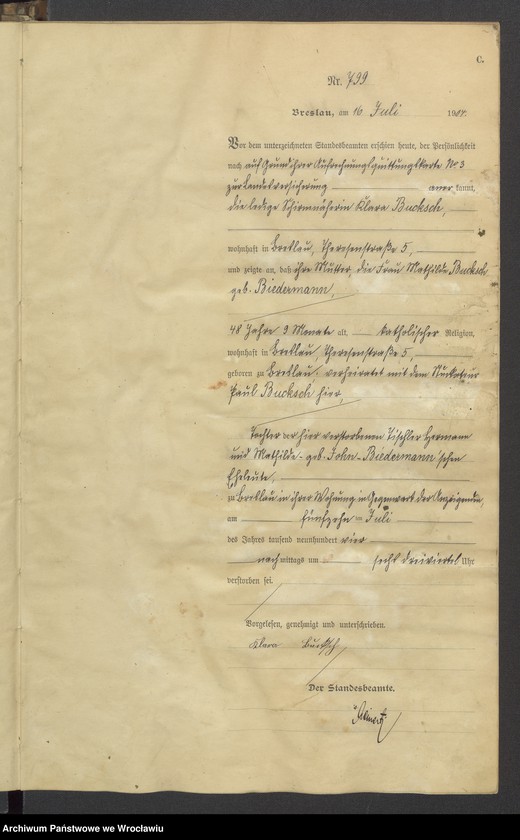 C.
Nr. 799
Breslau, am 16 Juli 1904.
Vor dem unterzeichneten Standesbeamten erschien heute, der Persönlichkeit
nach auf Grund ihrer Aufrechnungsquittungskarte No 3
zur Landesversicherung anerkannt,
die ledige Schirmnäherin Klara Bucksch,
wohnhaft in Breslau, Theresenstraße 5,
und zeigte an, daß ihre Mutter, die Frau Mathilde Bucksch
geb. Biedermann,
48 Jahre 9 Monate alt, katholischer Religion,
wohnhaft in Breslau, Theresenstraße 5,
geboren zu Breslau, verheiratet mit dem
Paul Bucksch hier,
Tochter der hier verstorbenen Tischler Hermann
und Mathilde geb. John - Biedermann'schen
Eheleute,
zu Breslau in ihrer Wohnung in Gegenwart der Anzeigenden,
am fünfzehn ten Juli
des Jahres tausend neunhundert vier
nachmittags um sechs dreiviertel Uhr
verstorben sei.
Vorgelesen, genehmigt und unterschrieben.
Klara Bucksch
Der Standesbeamte.
Archiwum Państwowe we Wrocławiu